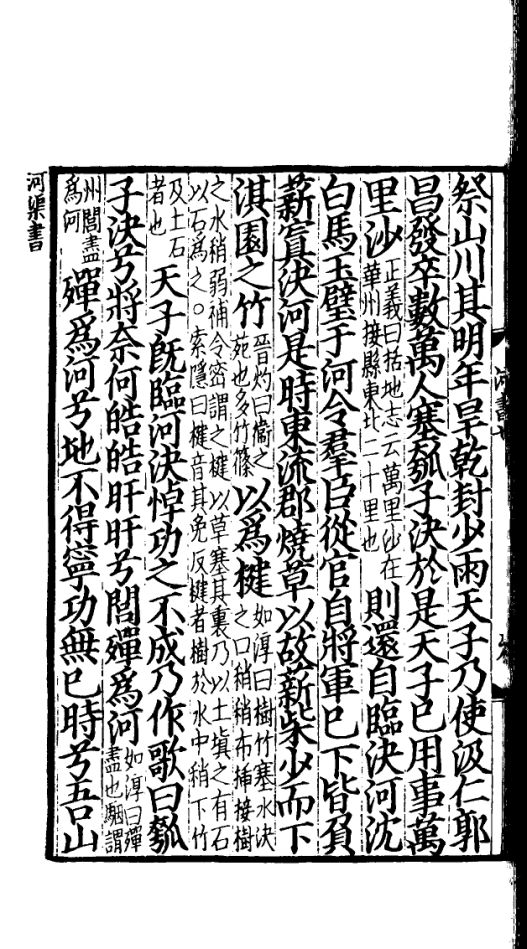 祭山川其明年旱乾封少雨天子乃使汲仁郭
昌發卒數萬人塞瓠子決於是天子已用事萬
里沙正義曰括地志云萬里沙在華州接縣東北二十里也則還自臨決河沈
白馬玉璧于河令羣臣從官自將軍已下皆負
薪窴決河是時東流郡燒草以故薪柴少而下
淇園之竹晉灼曰衞之苑也多竹篠以爲楗如淳曰樹竹塞水決之口稍稍布插接樹
之水稍弱補令密謂之楗以草塞其裏乃以土填之有石
以石爲之○索隱曰楗音其免反楗者樹於水中稍下竹
及土石者也天子既臨河決悼功之不成乃作歌曰瓠
子決兮將奈何皓皓旰旰兮閭殫爲河如淳曰殫盡也駰謂
州閭盡爲河殫爲河兮地不得寧功無已時兮吾山
河渠書